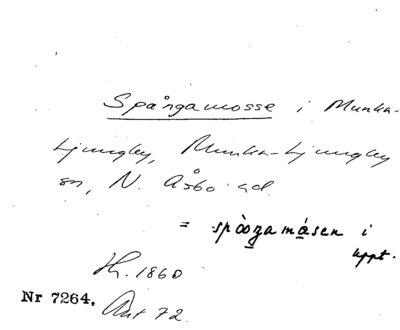 Spångamosse i Munka-
Ljungby, Munka-Ljungby
sn, N. Åsbo hd.
= spå̀ngamåsen i
uppt.
Hr. 1860
Nr 7264. Ant 72